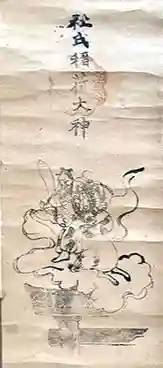 氏稲荷大神